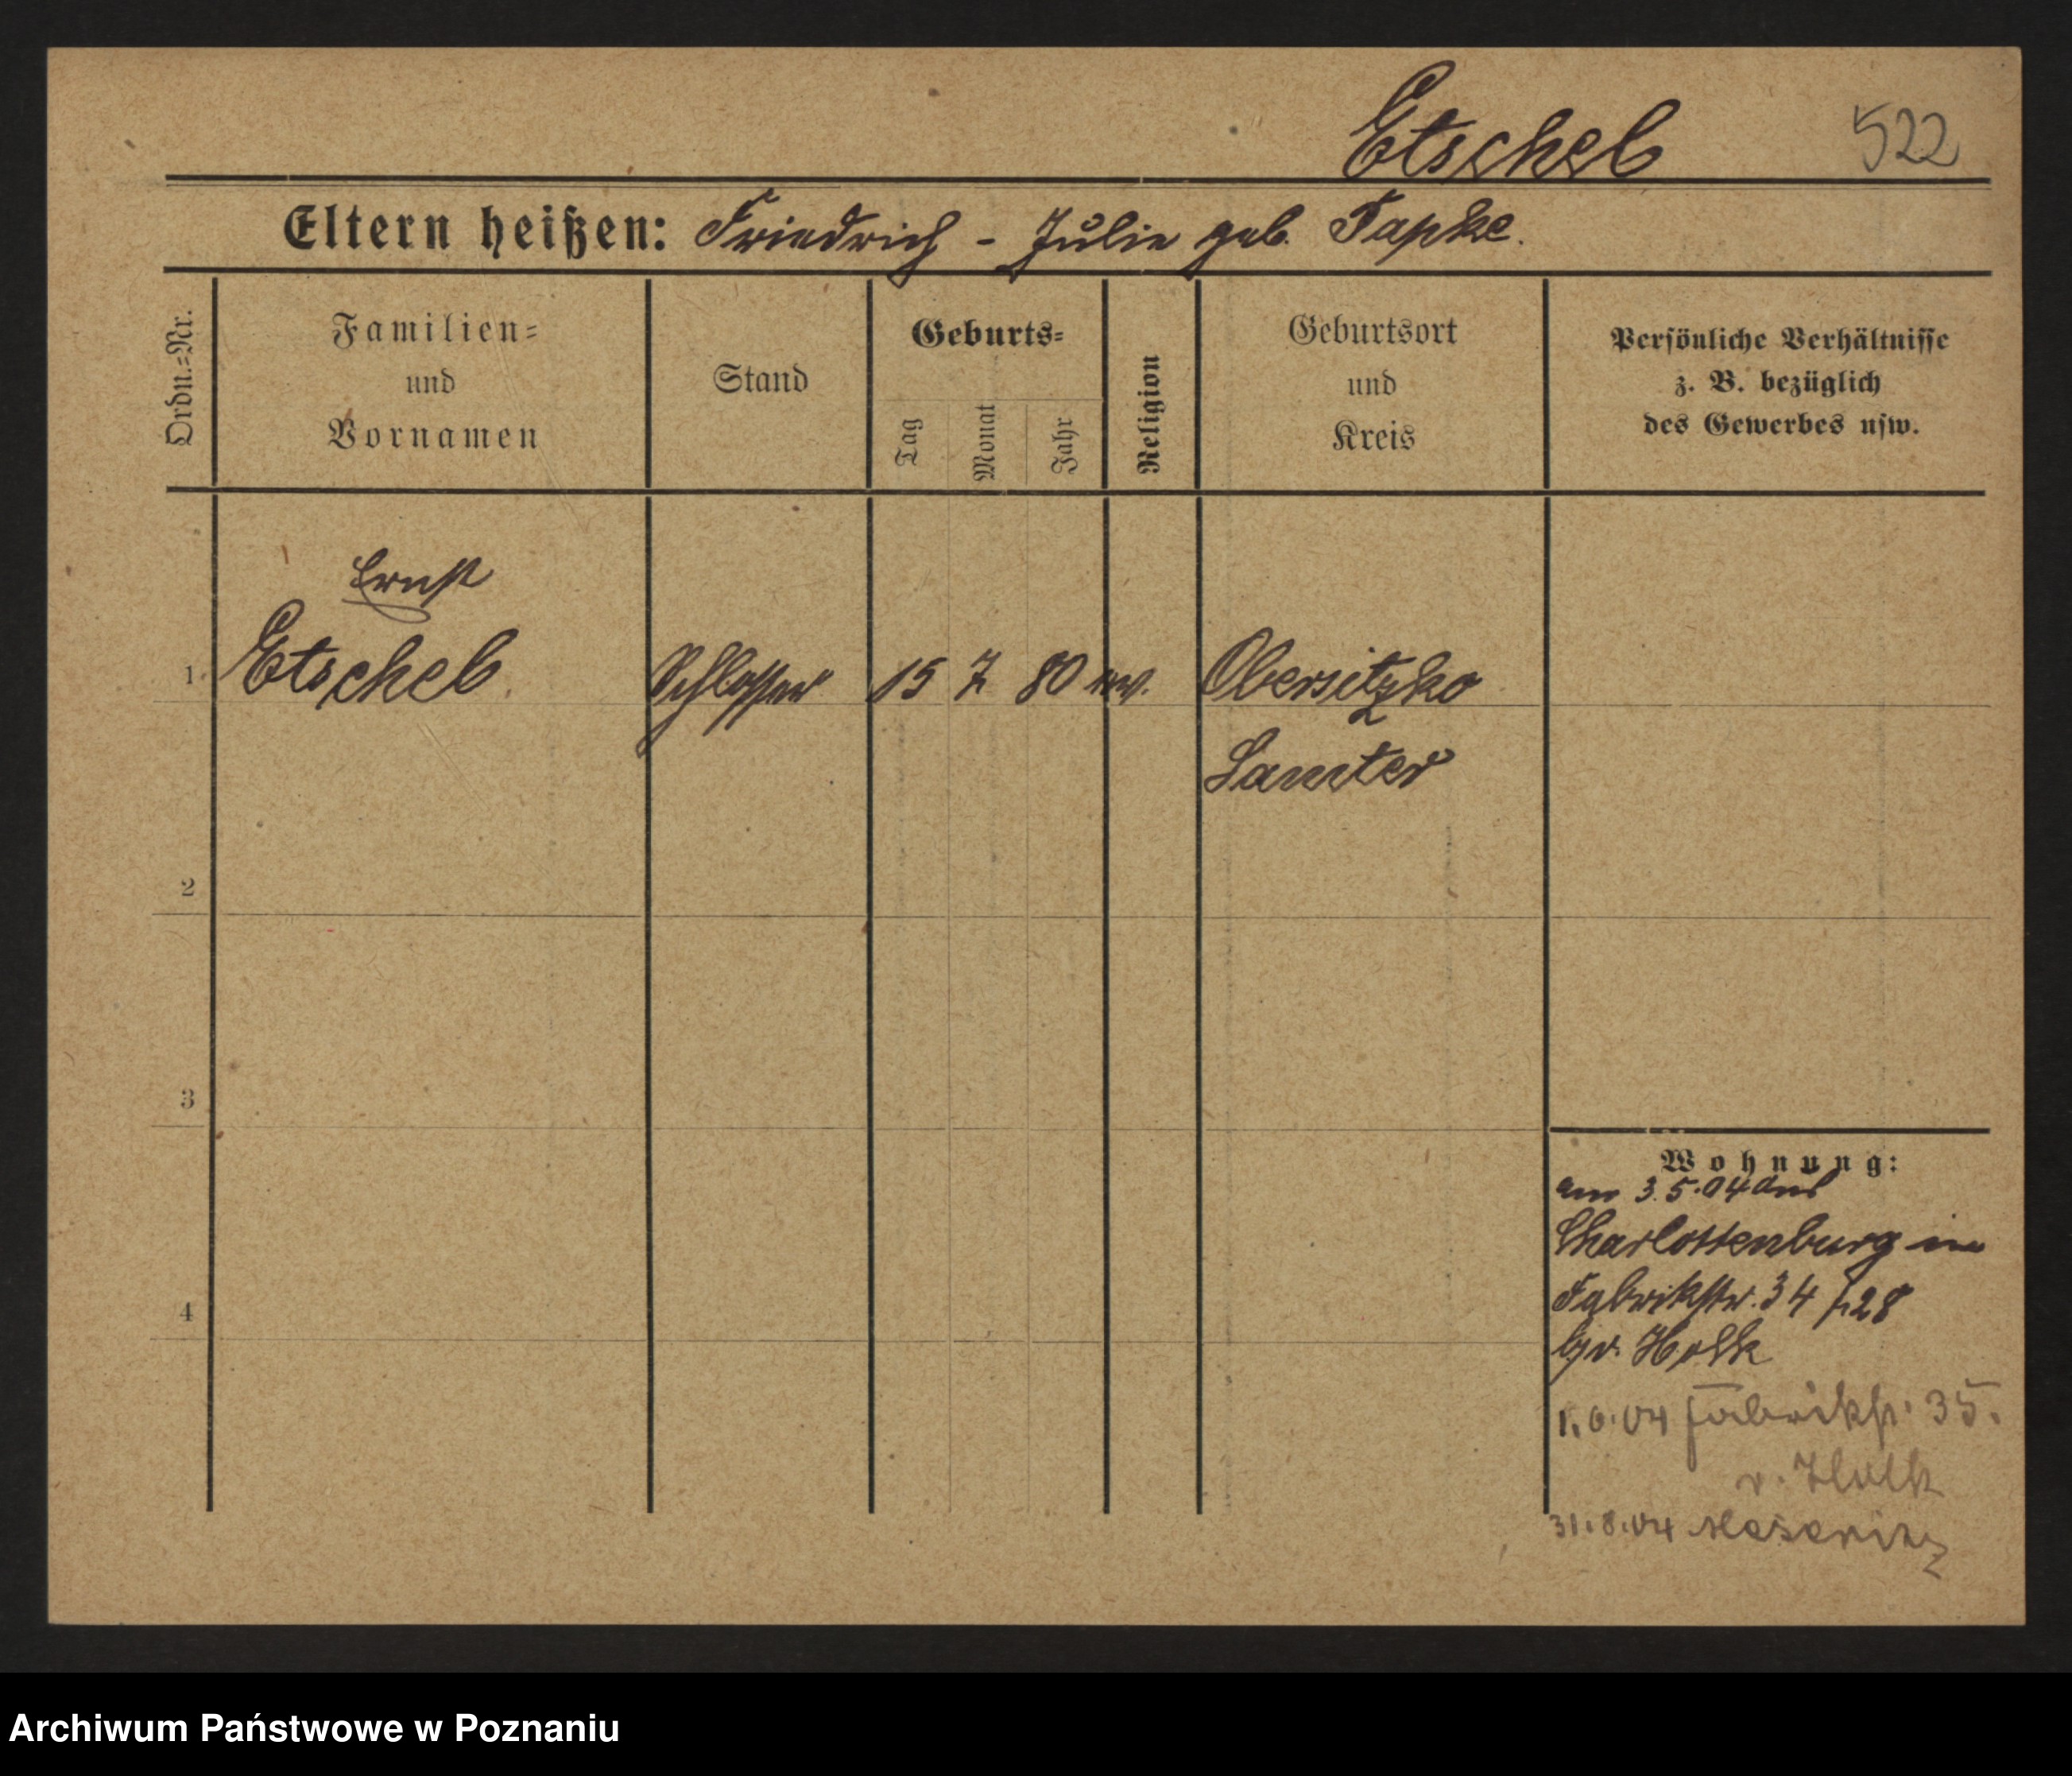 Etscheb 522
Eltern heißen: Friedrich - Julie geb. Tapke.
Ordn.=Nr.
Familien=
und
Vornamen
Stand
Geburts=
Tag
Monat
Jahr
Religion
Geburtsort
und
Kreis
Persönliche Verhältnisse
z. B. bezüglich
des Gewerbes usw.
Ernst
1 Etscheb Schlosser 15 7 80 ev. Obersitzko
Samter
2
3
4
Wohnung:
am 3.5.04 aus
Charlottenburg in
Fabrikstr. 34
b/v. Holk
1.6.04 Fabrikstr. 35.
v. Holk
31.8.04 Meseritz
Archiwum Państwowe w Poznaniu